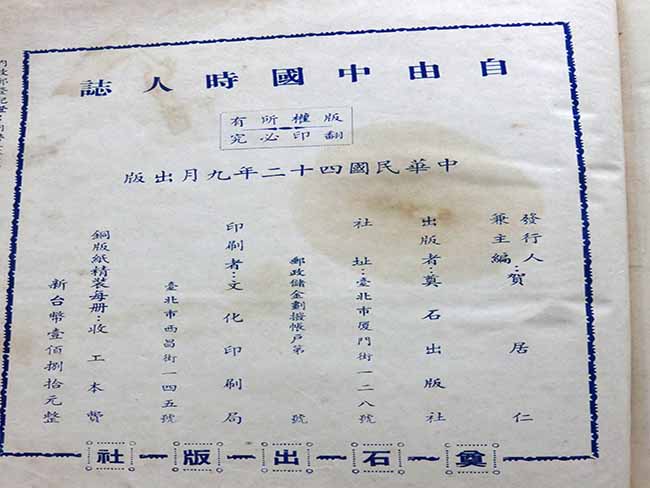 自由中國時人誌
版權所有
翻印必究
中華民國四十二年九月出版
發行人兼主編：賀居仁
出版者：奠石出版社
社址：臺北市厦門街一二八號
郵政儲金劃撥帳戶第　　號
印刷者：文化印刷局
臺北市西昌街一四五號
銅版紙精裝每册：收工本費
新台幣壹佰捌拾元整
奠石出版社